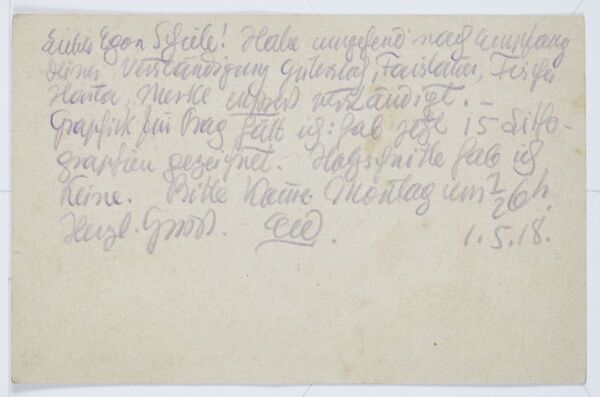 Lieber Egon Schiele! Habe umgehend nach Empfang
Deiner Verständigung Gütersloh, Faistauer, Fischer
Harta, Merke express verständigt. –
Graphik für Prag hätt ich: hab jetzt 15 Litho-
graphien gezeichnet. Holzschnitte hab ich
keine. Bitte komme Montag um 1/2 6 h.
Herzl. Gruß. 1.5.18.